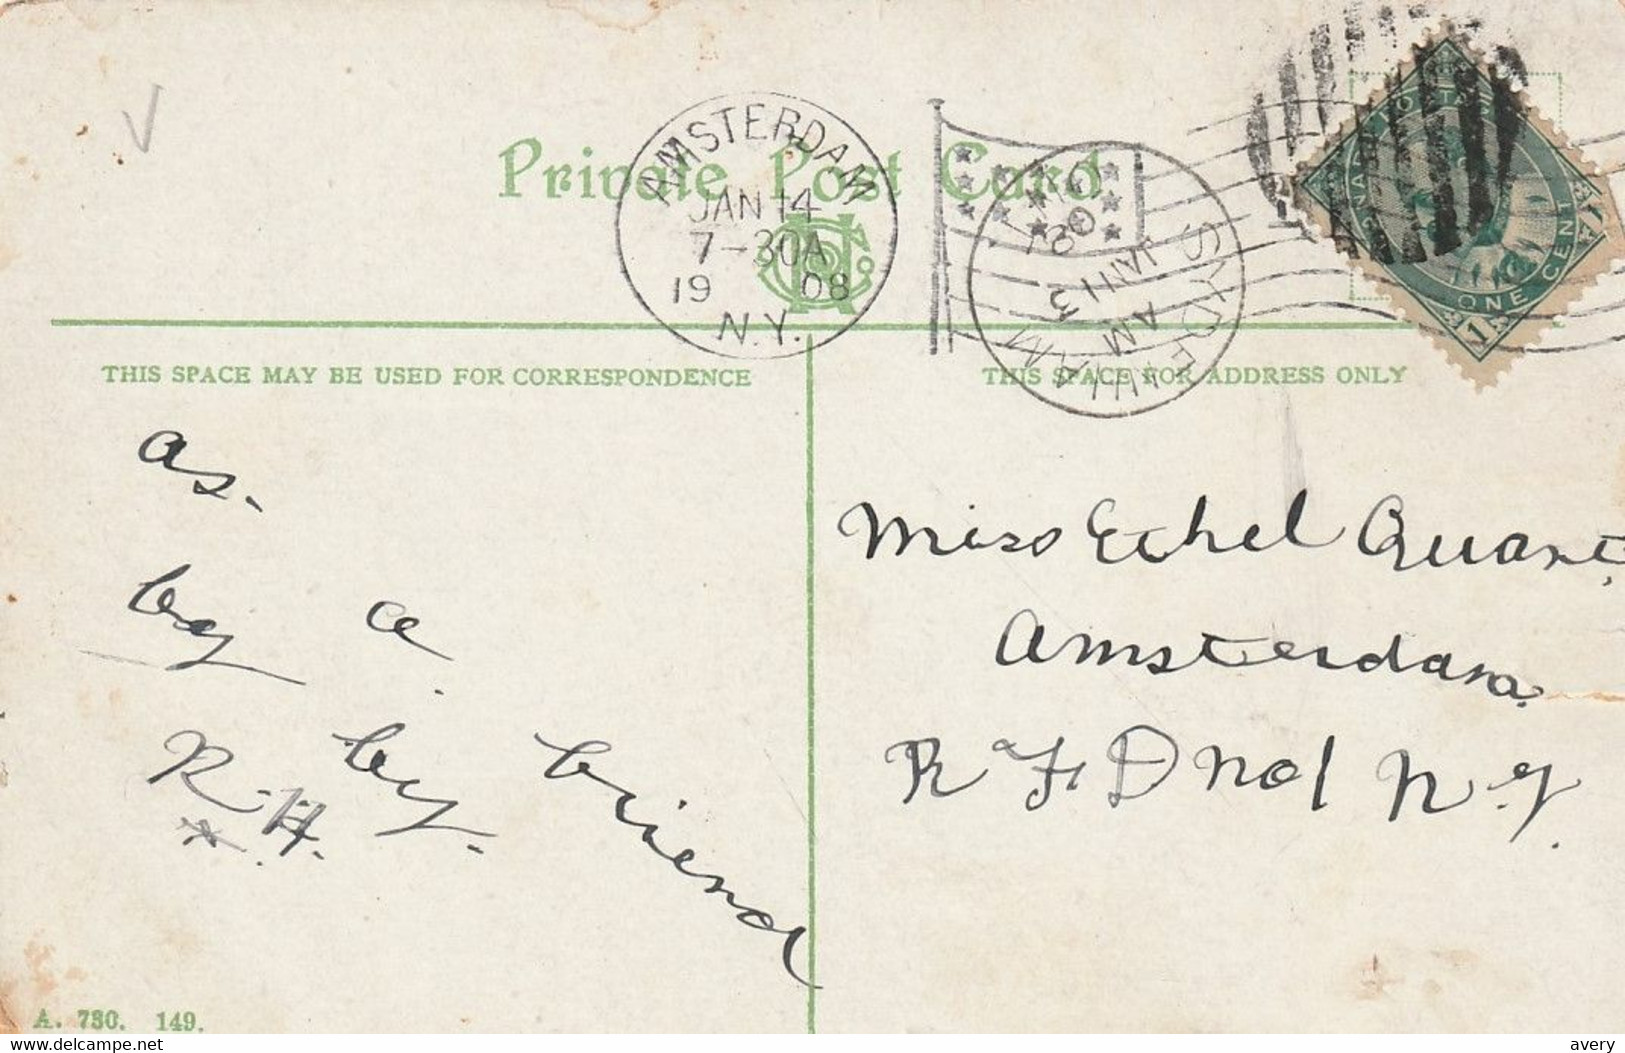 Private Post Card
AMSTERDAM
JAN 14
7-30A
1908
N.Y.
SYDENHAM
AM
JAN 13
08
ONT
CANADA POSTAGE
ONE CENT
1
1
THIS SPACE MAY BE USED FOR CORRESPONDENCE
THIS SPACE FOR ADDRESS ONLY
as.
by a.
R.H. by. friend
Miss Ethel Quant
Amsterdam
R F D no 1 N.Y.
A. 730. 149.
delcampe.net
avery